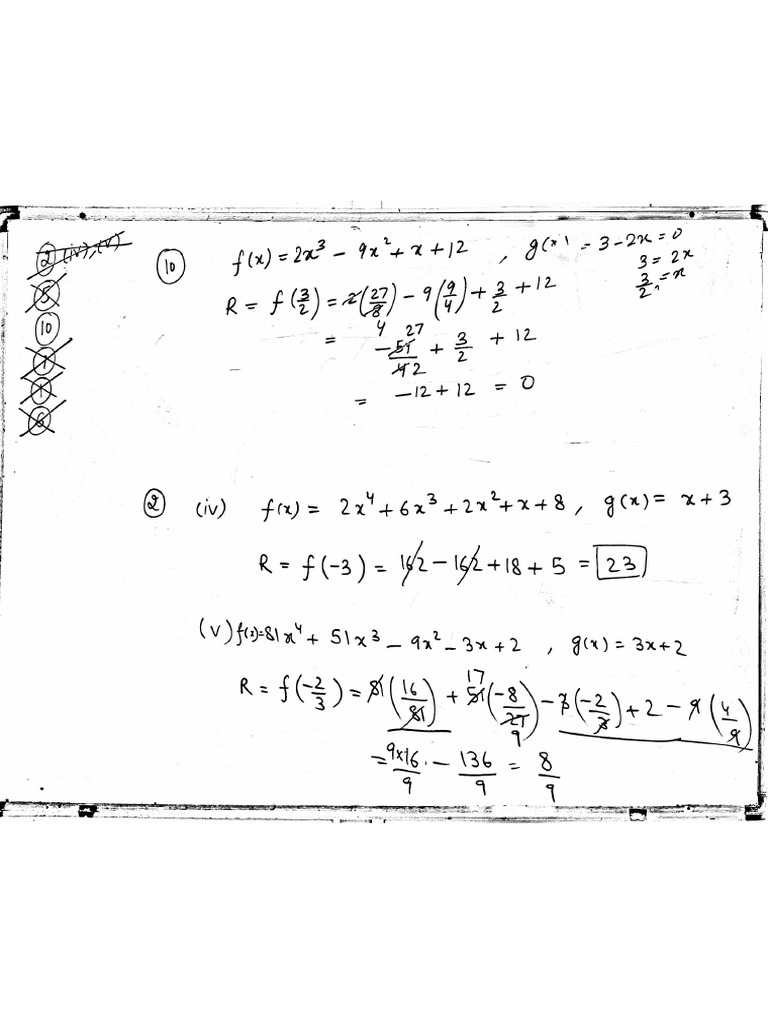 2 (iv), (v)
5
10
1
1
6
10 f(x) = 2x³ - 9x² + x + 12 , g(x) = 3 - 2x = 0
3 = 2x
3/2 = x
R = f(3/2) = 2(27/8) - 9(9/4) + 3/2 + 12
4
= - 51/4 + 3/2 + 12
27 2
= -12 + 12 = 0
2 (iv) f(x) = 2x⁴ + 6x³ + 2x² + x + 8 , g(x) = x + 3
R = f(-3) = 162 - 162 + 18 + 5 = 23
(v) f(x) = 81x⁴ + 51x³ - 9x² - 3x + 2 , g(x) = 3x + 2
R = f(-2/3) = 81(16/81) + 51(-8/27) - 3(-2/3) + 2 - 9(4/9)
17 9
= 9×16/9 - 136/9 = 8/9